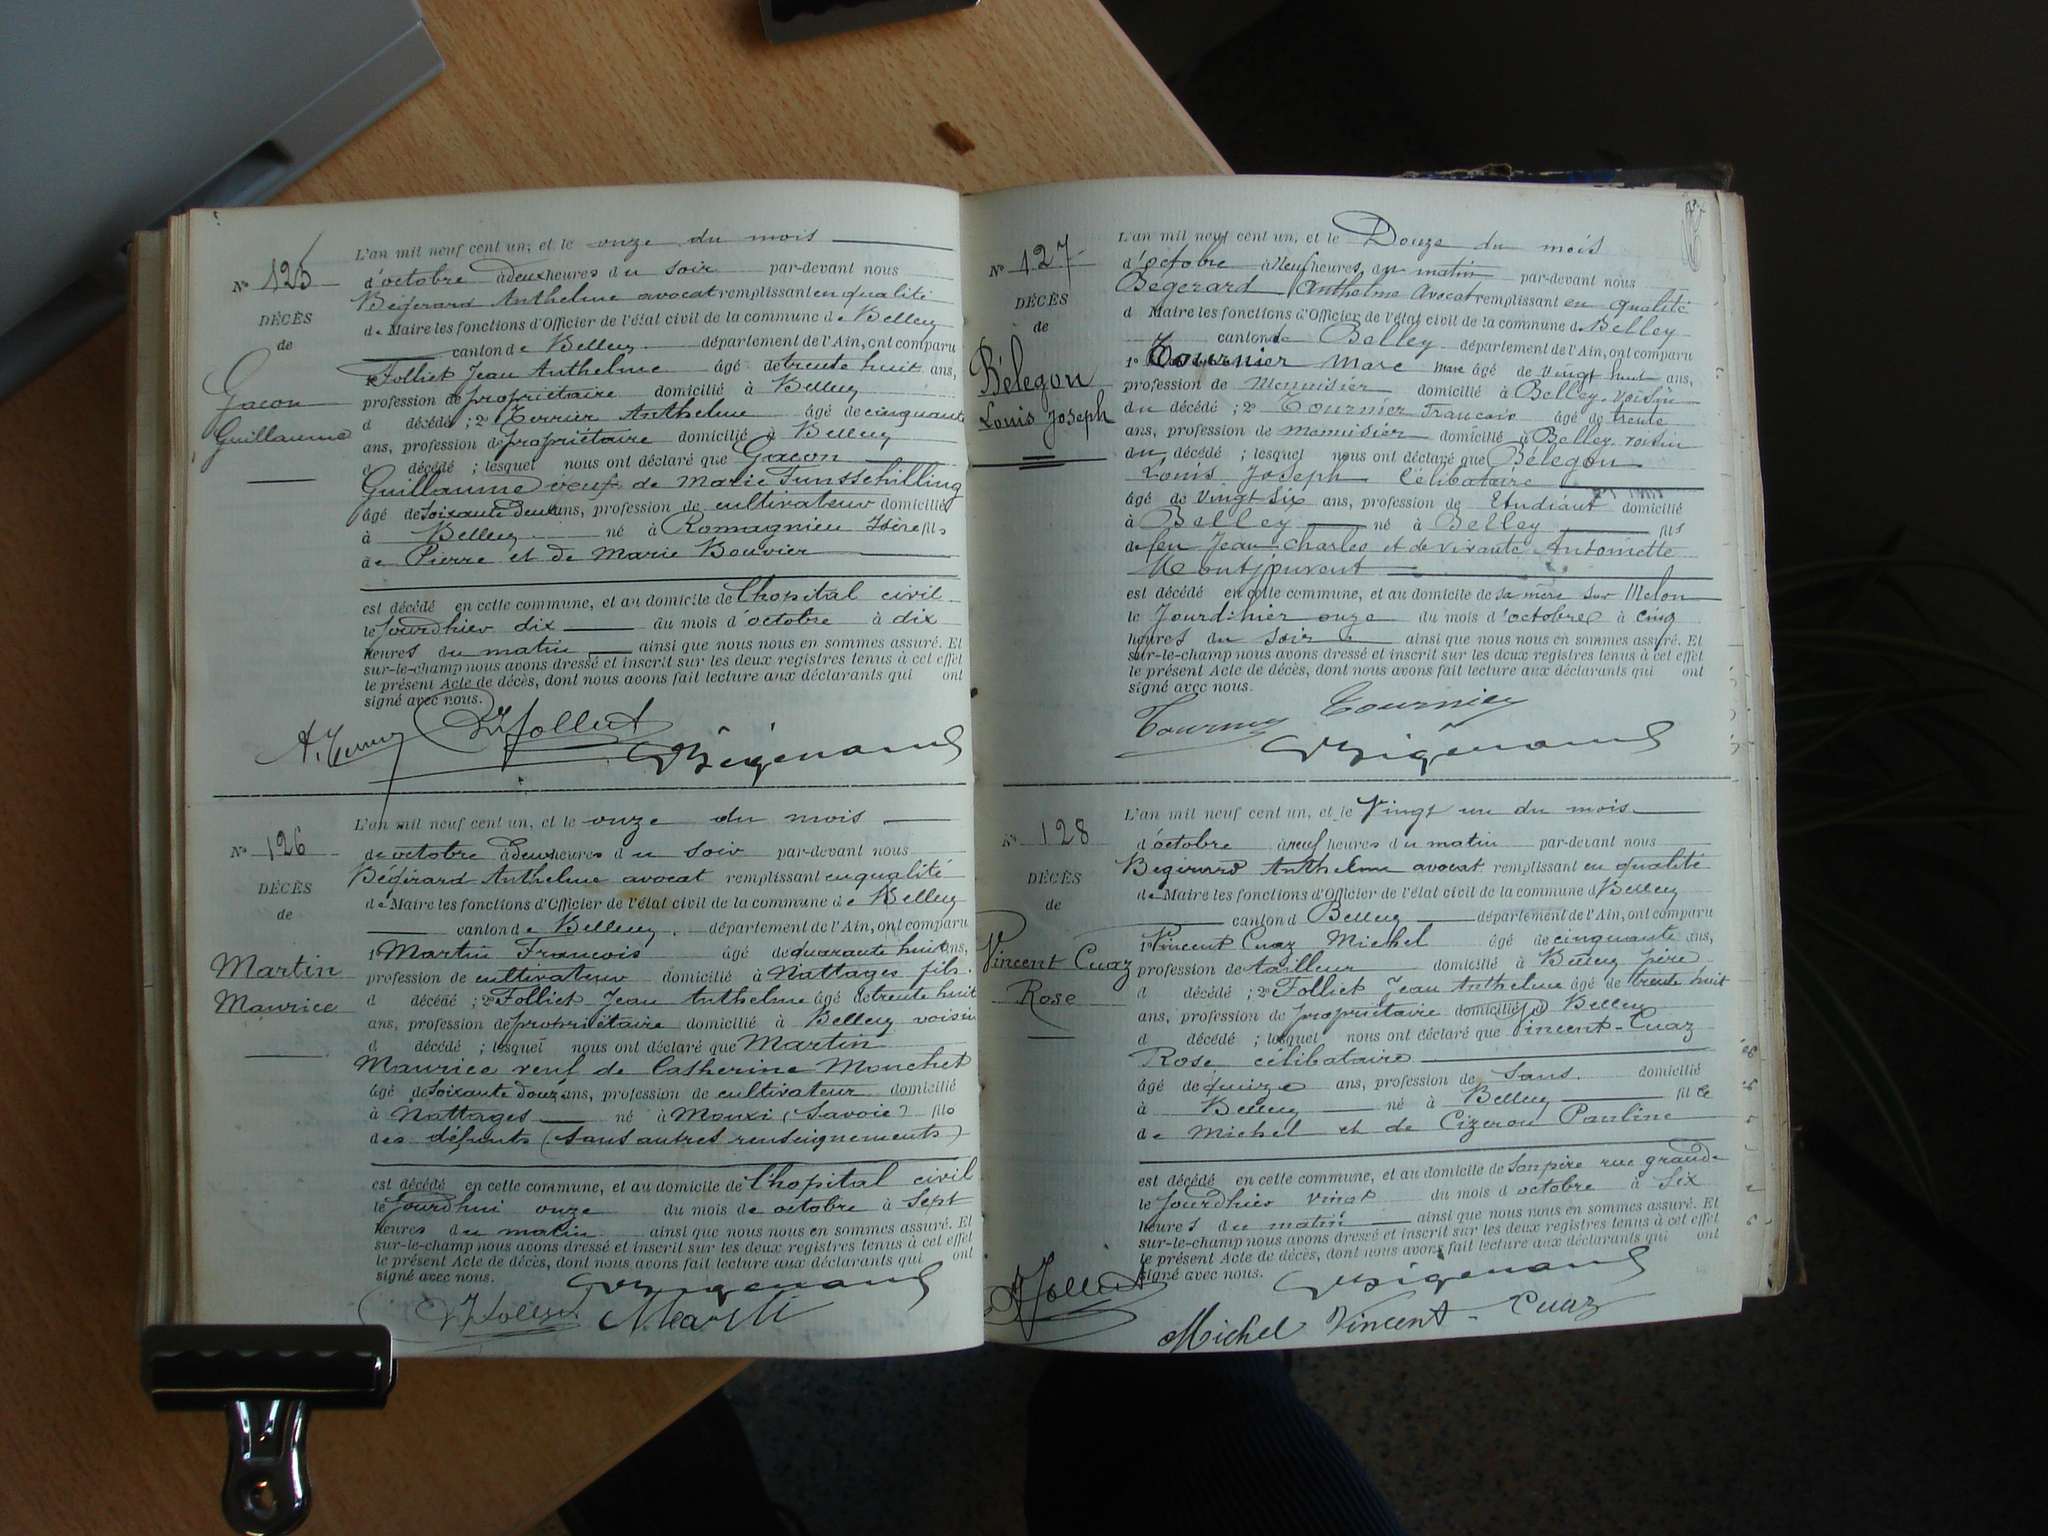 L'an mil neuf cent un, et le onze du mois
N° 125
d'octobre à deux heures du soir par-devant nous
Bégerard Anthelme avocat remplissant en qualité
DÉCÈS
de Maire les fonctions d'Officier de l'état civil de la commune de Belley
de
canton de Belley département de l'Ain, ont comparu
Gacon
Guillaume
1° Folliet Jean Anthelme âgé de trente huit ans,
profession de propriétaire domicilié à Belley
d décédé ; 2° Terrier Anthelme âgé de cinquante
ans, profession de propriétaire domicilié à Belley
d décédé ; lesquel nous ont déclaré que Gacon
Guillaume veuf de Marie
âgé de soixante deux ans, profession de cultivateur domicilié
à Belley né à Romagnieu Isère fils
de Pierre et de Marie Bouvier
est décédé en cette commune, et au domicile de l'hopital civil
le jourd'hier dix du mois d'octobre à dix
heures du matin ainsi que nous nous en sommes assuré. Et
sur-le-champ nous avons dressé et inscrit sur les deux registres tenus à cet effet
le présent Acte de décès, dont nous avons fait lecture aux déclarants qui ont
signé avec nous.
L'an mil neuf cent un, et le onze du mois
N° 126
de octobre à deux heures du soir par-devant nous
Bégérard Anthelme avocat remplissant en qualité
DÉCÈS
de Maire les fonctions d'Officier de l'état civil de la commune de Belley
de
canton de Belley département de l'Ain, ont comparu
Martin
Maurice
1° Martin Francois âgé de quarante huit ans,
profession de cultivateur domicilié à Nattages fils
d décédé ; 2° Folliet Jean Anthelme âgé de trente huit
ans, profession de propriétaire domicilié à Belley voisin
d décédé ; lesquel nous ont déclaré que Martin
Maurice veuf de Catherine Monchet
âgé de soixante douze ans, profession de cultivateur domicilié
à Nattages né à Mouxi (Savoie) fils
des défunts (sans autres renseignements)
est décédé en cette commune, et au domicile de l'hopital civil
le jourd'hui onze du mois de octobre à sept
heures du matin ainsi que nous nous en sommes assuré. Et
sur-le-champ nous avons dressé et inscrit sur les deux registres tenus à cet effet
le présent Acte de décès, dont nous avons fait lecture aux déclarants qui ont
signé avec nous.
L'an mil neuf cent un, et le Douze du mois
N° 127
d'octobre à Neuf heures du matin par-devant nous
Begerard Anthelme Avocat remplissant en qualité
DÉCÈS
d Maire les fonctions d'Officier de l'état civil de la commune de Belley
de
canton de Belley département de l'Ain, ont comparu
Bélegon
Louis Joseph
1° Tournier Marc marc âgé de Vingt huit ans,
profession de Menuisier domicilié à Belley. voisin
du décédé ; 2° Tournier Francois âgé de trente
ans, profession de menuisier domicilié à Belley. voisin
du décédé ; lesquel nous ont déclaré que Bélegon
Louis Joseph Célibataire
âgé de Vingt Six ans, profession de Etudiant domicilié
à Belley né à Belley fils
de feu Jean Charles et de vivante Antoinette
Montjouvent
est décédé en cette commune, et au domicile de sa mère sur Melon
le Jourd'hier onze du mois d'octobre à cinq
heures du soir ainsi que nous nous en sommes assuré. Et
sur-le-champ nous avons dressé et inscrit sur les deux registres tenus à cet effet
le présent Acte de décès, dont nous avons fait lecture aux déclarants qui ont
signé avec nous.
Tournier
L'an mil neuf cent un, et le Vingt un du mois
N° 128
d'octobre à neuf heures du matin par-devant nous
Bégérard Anthelme avocat remplissant en qualité
DÉCÈS
de Maire les fonctions d'Officier de l'état civil de la commune d Belley
de
canton d Belley département de l'Ain, ont comparu
Vincent Cuaz
Rose
1° Vincent Cuaz Michel âgé de cinquante ans,
profession de tailleur domicilié à Belley père
d décédé ; 2° Folliet Jean Anthelme âgé de trente huit
ans, profession de propriétaire domicilié à Belley
d décédé ; lesquel nous ont déclaré que Vincent-Cuaz
Rose célibataire
âgé de quinze ans, profession de Sans domicilié
à Belley né à Belley fille
de Michel et de Cizeron Pauline
est décédé en cette commune, et au domicile de son père rue grande
le jourd'hier vingt du mois d octobre à six
heures du matin ainsi que nous nous en sommes assuré. Et
sur-le-champ nous avons dressé et inscrit sur les deux registres tenus à cet effet
le présent Acte de décès, dont nous avons fait lecture aux déclarants qui ont
signé avec nous.
Michel Vincent-Cuaz